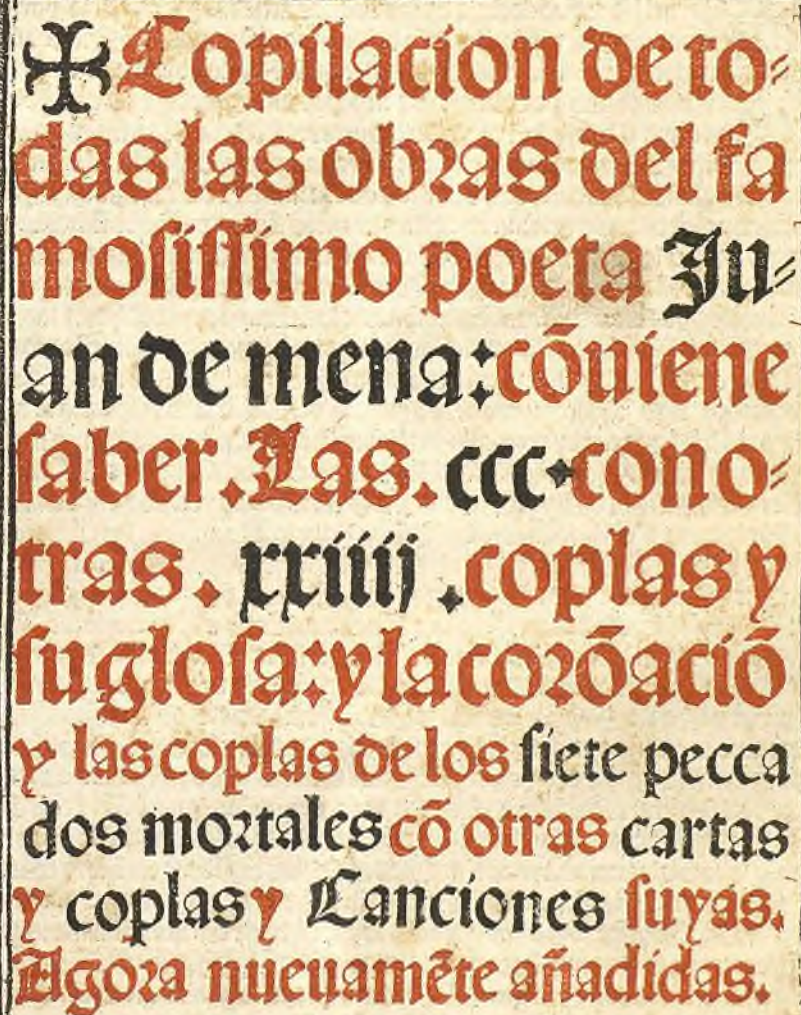 ✠ Copilacion de to⸗
das las obras del fa
moſiſſimo poeta Ju⸗
an de mena: cõuiene
ſaber. Las. ccc. con o⸗
tras. xxiiij. coplas y
ſu gloſa: y la corõaciõ
y las coplas de los ſiete pecca
dos mortales cõ otras cartas
y coplas y Canciones ſuyas.
Agora nueuamẽte añadidas.